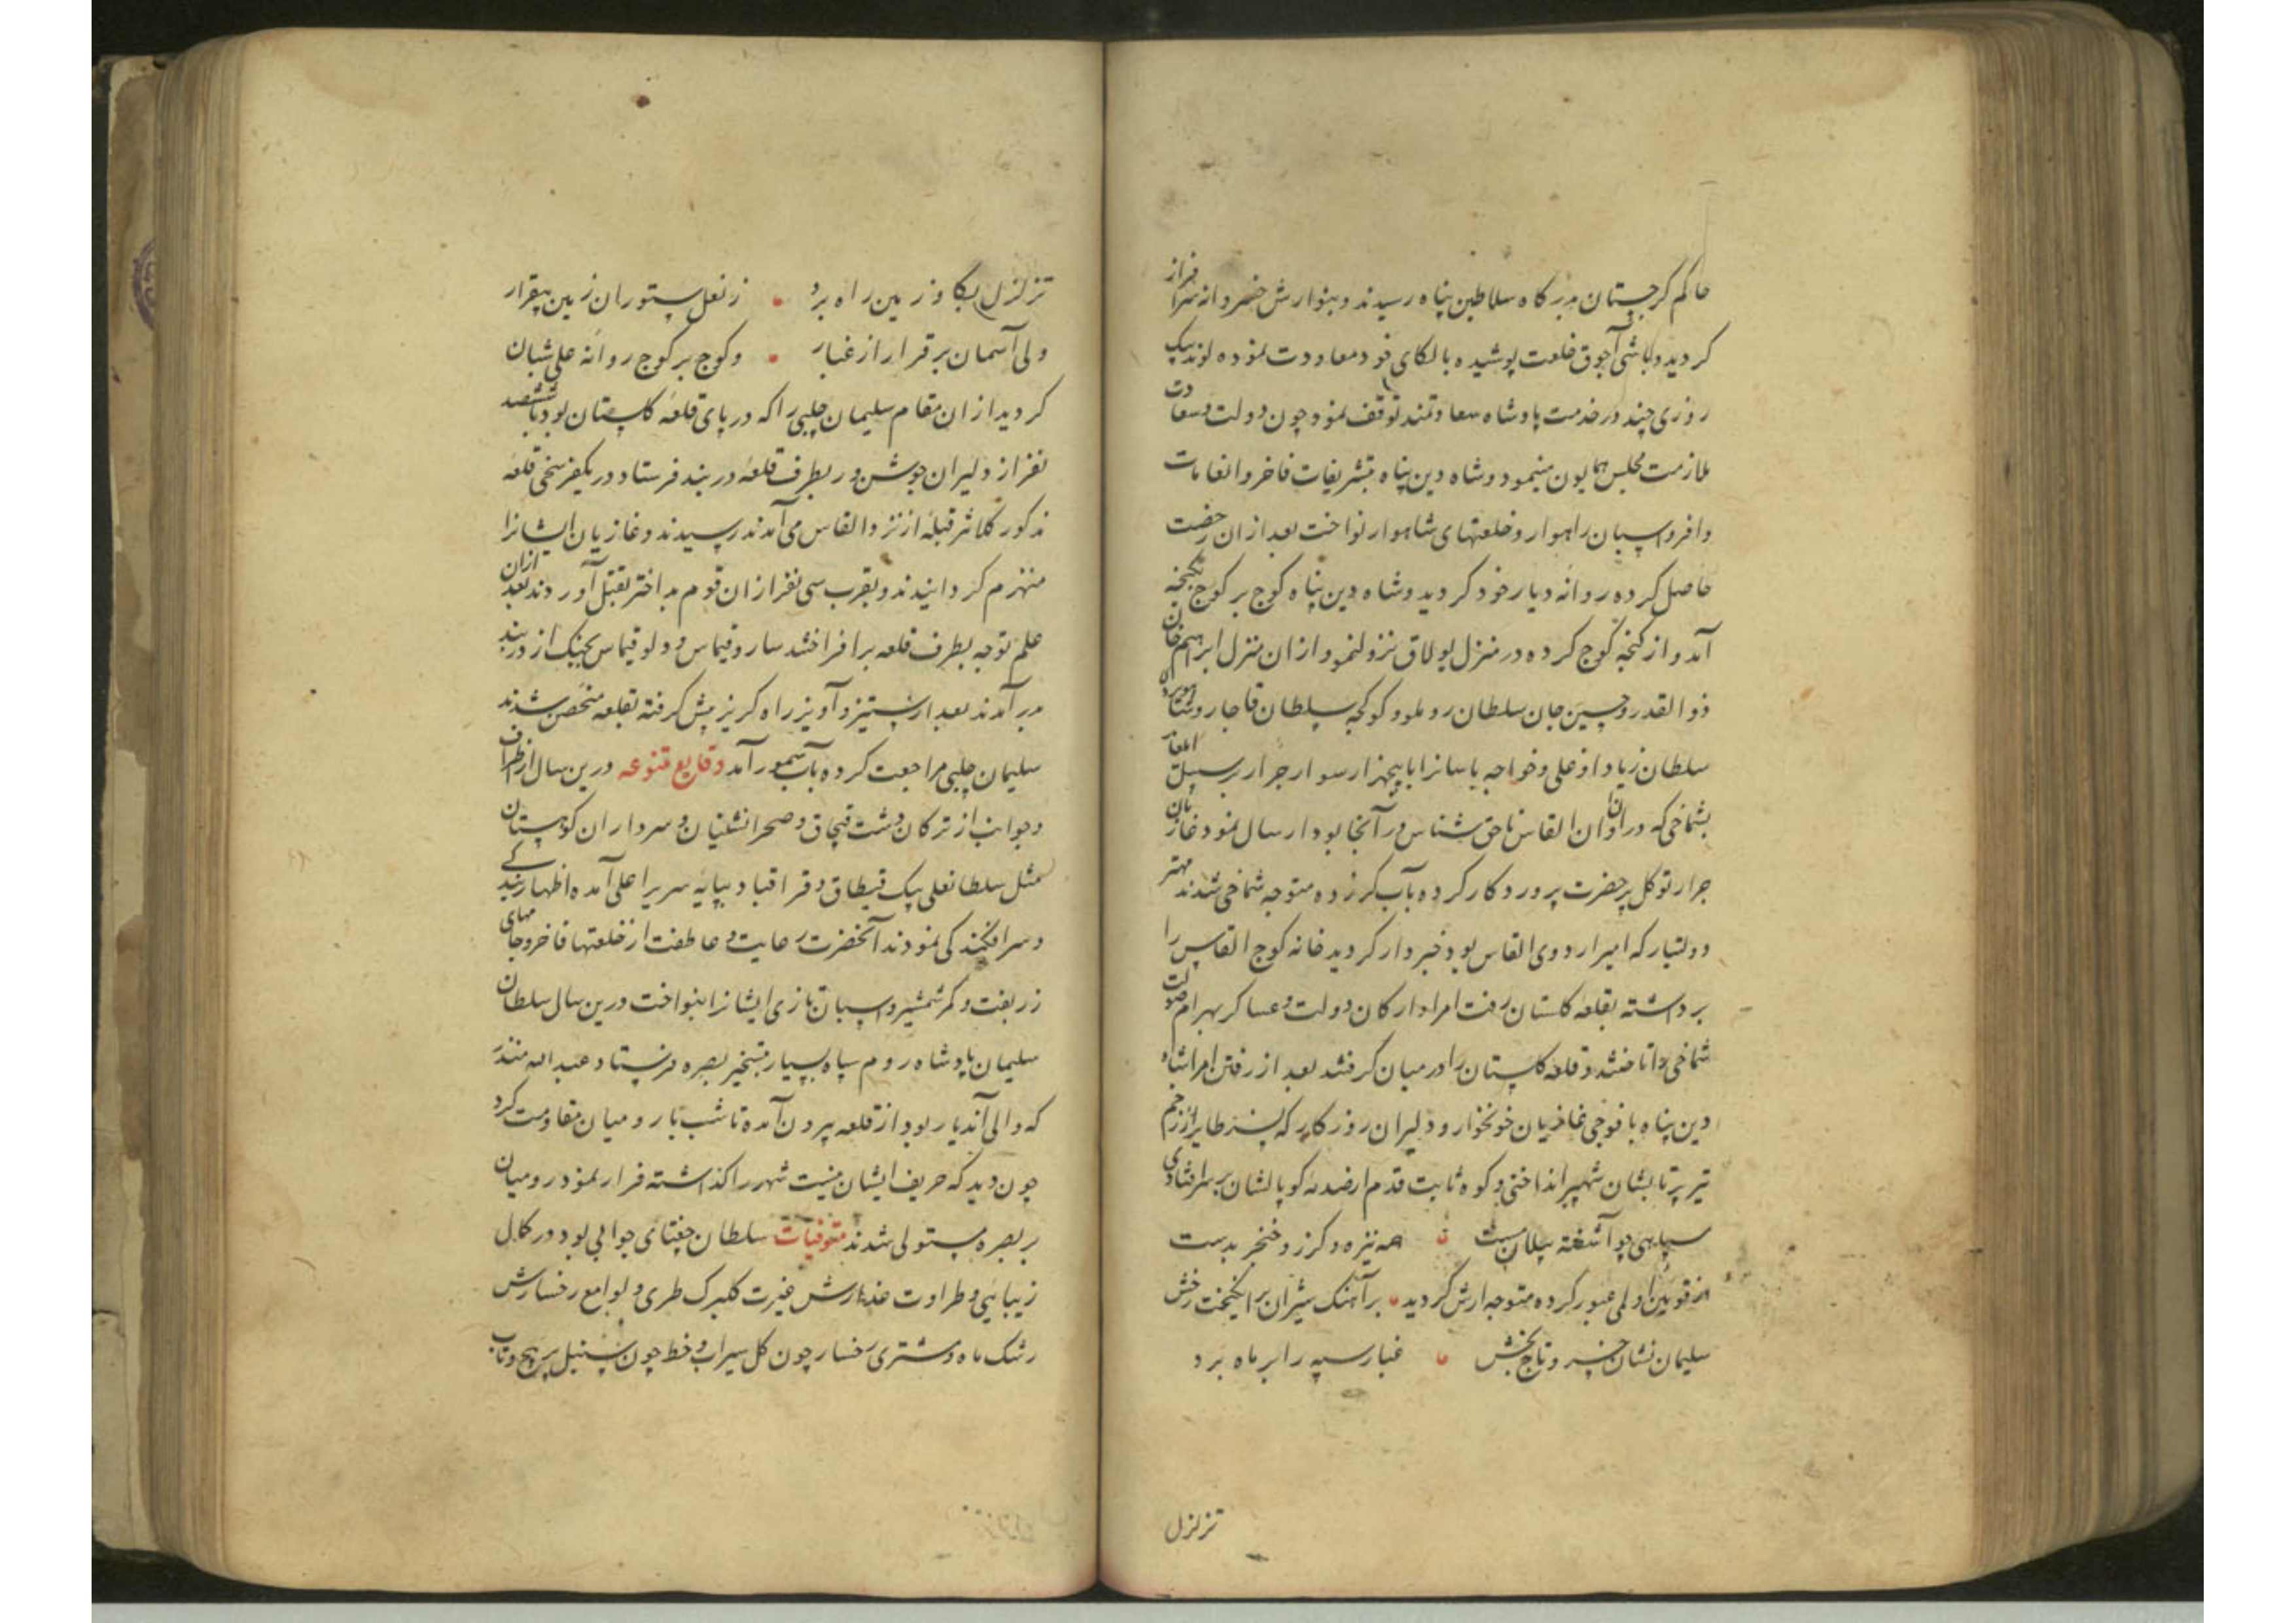 حاکم کرجستان بدرکاه سلاطین پناه رسیدند و بنوازش خسروانه سرافراز
کردید و باشی آجوق خلعت پوشیده بالکای خود معاودت نموده لوند بیک
روزی چند در خدمت پادشاه سعادتمند توقف نمود چون دولت و سعادت
ملازمت مجلس همایون مینمود و شاه دین پناه بتشریفات فاخر و انعامات
وافر و اسپان راهوار و خلعتهای شاهوار نواخت بعد از ان رخصت
حاصل کرده روانه دیار خود کردید و شاه دین پناه کوچ بر کوچ بکنجه
آمد و از کنجه کوچ کرده در منزل یولاق نزول نمود از ان منزل ابراهیم خان
ذوالقدر و حسین جان سلطان روملو و کوکجه سلطان قاجار و شاهویردی
سلطان زیاد اوغلی و خواجه یاسانرا با پنجهزار سوار جرار بر سبیل ایلغار
بشماخی که در ان اوان القاس ناحق شناس در آنجا بود ارسال نمود غازیان
جرار توکل بر حضرت پروردکار کرده بآب کر زده متوجه شماخی شدند مهتر
دولتیار که امیر اردوی القاس بود خبردار کردید خانه کوچ القاس را
برداشته بقلعه کلستان رفت امرا و ارکان دولت و عساکر بهرام صولت
شماخی را تاختند و قلعه کلستان را در میان کرفتند بعد از رفتن امرا شاه
دین پناه با فوجی غازیان خونخوار و دلیران روزکار که نسر طایر از زخم
تیر پرتابشان شهپر انداختی و کوه ثابت قدم از صدمه کوپالشان بسر افتادی
سپاهی چو آشفته پیلان مست ٭ همه نیزه و کرز و خنجر بدست
از قوین اولمی عبور کرده متوجه ارش کردید ٭ بر آهنک شیران بر انکیخت رخش
سلیمان نشان خسرو تاج بخش ٭ غبار سپه را بر ماه برد
تزلزل
تزلزل بکاو زمین راه برد ٭ ز نعل ستوران زمین بیقرار
ولی آسمان برقرار از غبار ٭ و کوچ بر کوچ روانه علی شبان
کردید از ان مقام سلیمان چلبی را که در پای قلعه کلستان بود با ششصد
نفر از دلیران جوشن ور بطرف قلعه دربند فرستاد در یکفرسخی قلعه
مذکور کلانتر قبله از نزد القاس می آمدند رسیدند و غازیان ایشانرا
منهزم کردانیدند و بقرب سی نفر از ان قوم بد اختر بقتل آوردند بعد ازان
علم توجه بطرف قلعه برافراختند ساروقیماس و دولو قیماس بجنک از دربند
برآمدند بعد از ستیز و آویز راه کریز پیش کرفته بقلعه متحصن شدند
سلیمان چلبی مراجعت کرده بآب سمور آمد وقایع متنوعه درین سال از اطراف
و جوانب از ترکان دشت قبچاق و صحرانشینان و سرداران کوهستان
مثل سلطانعلی بیک قیطاق و قراقباد بپایه سریر اعلی آمده اظهار بندکی
و سرافکندکی نمودند آنحضرت رعایت و عاطفت از خلعتها فاخر و جامهای
زربفت و کمر شمشیر و اسپان تازی ایشانرا بنواخت درین سال سلطان
سلیمان پادشاه روم سپاه بسیار بتسخیر بصره فرستاد عبدالله منذر
که والی آندیار بود از قلعه بیرون آمده تا شب با رومیان مقاومت کرد
چون دید که حریف ایشان نیست شهر را کذاشته فرار نمود رومیان
بر بصره مستولی شدند متوفیات سلطان جغتای جوانی بود در کمال
زیبائی و طراوت عذارش غیرت کلبرک طری و لوامع رخسارش
رشک ماه و مشتری رخسار چون کل سیراب و خط چون سنبل پر پیچ و تاب